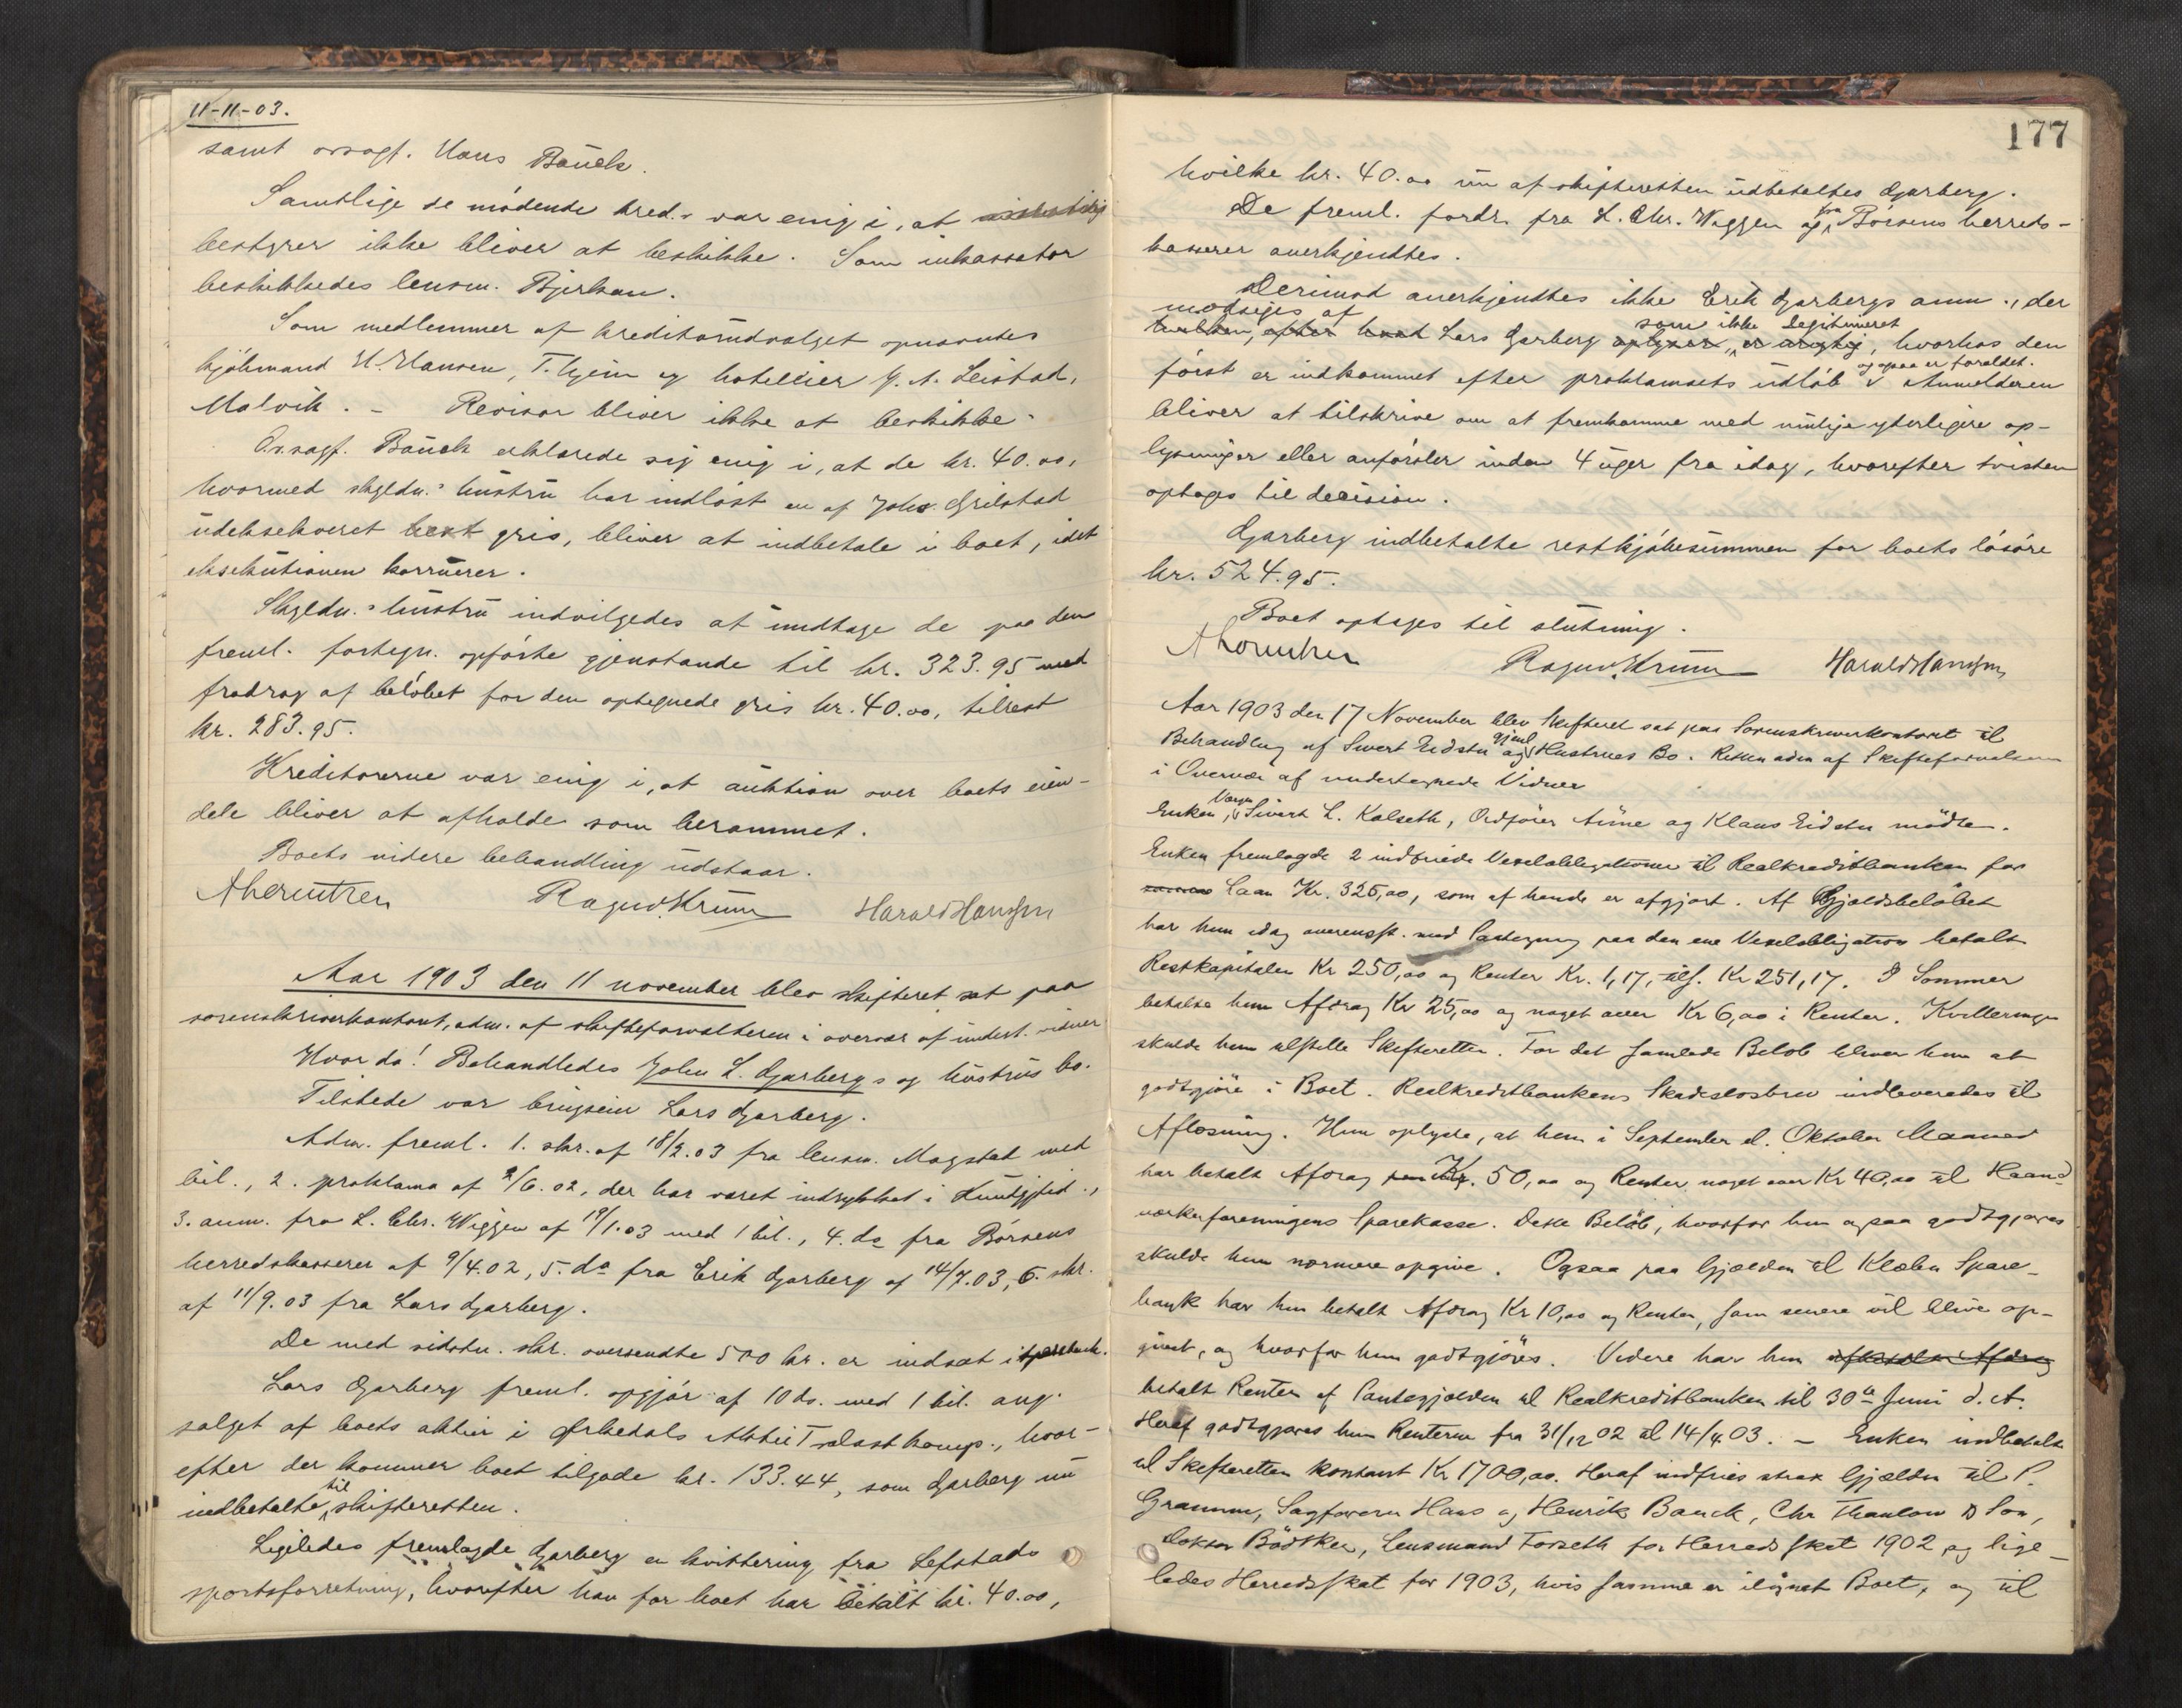 11-11-03.
samt orsagf. Hans Bauck.
Samtlige de mødende kred. var enig i, at
bestyrer ikke bliver at beskikke. Som inkassator
beskikkedes lensm. Bjerkan.
Som medlemmer af kreditorudvalget opnævntes
kjøbmand H. Hansen, T. hjem og hotellier J. A. Leistad,
Malvik. - Revisor bliver ikke at beskikke.
O.r.sagf. Bauck erklærede sig enig i, at de kr. 40.00,
hvormed skyldn.s hustru har indløst en af Johs. Grilstad
udeksekveret gris, bliver at indbetale i boet, idet
eksekutionen korruerer.
Skyldn.s hustru indvilgedes at undtage de paa den
freml. fortegn. opførte gjenstande til kr. 323.95 med
fradrag af beløbet for den optegnede gris kr. 40.00, tilrest
kr. 283.95.
Kreditorerne var enig i, at auktion over boets eien-
dele bliver at afholde som berammet.
Boets videre behandling udstaar.
Ragnv. Krum Harald Hansen
Aar 1903 den 11 november blev skifteret sat paa
sorenskriverkontoret, adm. af skifteforvalteren i overvær af undert. vidner
Hvor da! Behandledes John L. Gjarbergs og hustrus bo.
Tilstede var brugseier Lars Gjarberg.
Adm. freml. 1. skr. af 18/2.03 fra lensm. Magstad med
bil., 2. proklama af 2/6.02, der har været indrykket i Kundgjtid.,
3. anm. fra L. Chr. Wiggen af 19/1.03 med 1 bil., 4. do fra Børsens
herredskasserer af 9/4.02, 5. do fra Erik Gjarberg af 14/7.03, 6. skr.
af 11/9.03 fra Lars Gjarberg.
De med sidstn. skr. oversendte 500 kr. er indsat i sparebank.
Lars Gjarberg freml. opgjør af 10 ds. med 1 bil. ang.
salget af boets aktier i Ørkedals Aktie Trælast komp., hvor-
efter der kommer boet tilgode kr. 133.44, som Gjarberg nu
indbetalte til skifteretten.
Ligeledes fremlagde Gjarberg en kvittering fra Lefstads
sportsforretning, hvorefter han for boet har betalt kr. 40.00,
177
hvilke kr. 40.00 nu af skifteretten udbetaltes Gjarberg.
De freml. fordr. fra L. Chr. Wiggen og fra Børsens herreds-
kasserer anerkjendtes.
Derimod anerkjendtes ikke Erik Gjarbergs anm., der
modsiges af Lars Gjarberg som ikke legitimeret, hvorhos den
først er indkommet efter proklamaets udløb og ogsaa er forældet. Anmelderen
bliver at tilskrive om at fremkomme med mulige yderligere op-
lysninger eller anførsler inden 4 uger fra idag, hvorefter tvisten
optages til decision.
Gjarberg indbetalte restkjøbesummen for boets løsøre
kr. 524.95.
Boet optages til slutning.
Ragnv. Krum Harald Hansen
Aar 1903 den 17 November blev Skifteret sat paa Sorenskriverkontoret til
Behandling af Sivert Eidstu og gjenl. Hustrues Bo. Retten adm af Skifteforvalteren
i Overvær af undertegnede Vidner
Enken, Værge Sivert L. Kalseth, Ordfører Aune og Klaus Eidstu mødte.
Enken fremlagde 2 indfriede Vexelobligationer til Realkreditbanken for
Laan Kr. 325,00, som af hende er afgjort. Af Gjældsbeløbet
har hun idag overensst. med Paategning paa den ene Vexelobligation betalt
Restkapitalen Kr 250,00 og Renter Kr. 1,17, tils. Kr 251,17. I Sommer
betalte hun Afdrag Kr 25,00 og noget over Kr 6,00 i Renter. Kvitteringer
skulde hun tilstille Skifteretten. For det samlede Beløb bliver hun at
godtgjøre i Boet. Realkreditbankens Skadesløsbrev indleveredes til
Aflæsning. Hun oplyste, at hun i September el. Oktober Maaned
har betalt Afdrag Kr. 50,00 og Renter noget over Kr 40,00 til Haand-
værkerforeningens Sparekasse. Dette Beløb, hvorfor hun ogsaa godtgjøres
skulde hun nærmere opgive. Ogsaa paa Gjælden til Klæbu Spare-
bank har hun betalt Afdrag Kr 10,00 og Renter, som senere vil blive op-
givet, og hvorfor hun godtgjøres. Videre har hun
betalt Renter af Pantegjælden til Realkreditbanken til 30te Juni d. A.
Heraf godtgjøres hun Renterne fra 31/12 02 til 14/4 03. - Enken indbetalte
til Skifteretten kontant Kr 1700,00. Heraf indfries strax Gjælden til P.
Gramm, Sagfører Hans og Henrik Bauck, Chr Thaulow & Søn,
Doktor Bødtker, Lensmand Forseth for Herredsskat 1902 og lige-
ledes Herredsskat for 1903, hvis samme er ilignet Boet, og til